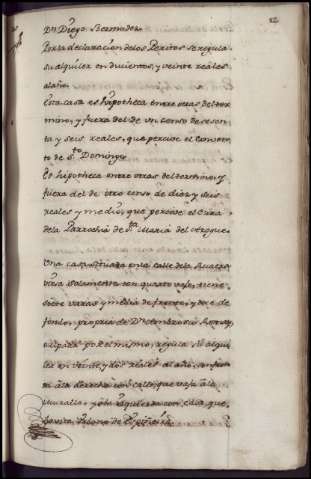 12
Dn Diego Bermudez.
Por la declaracion de los Peritos se regula
su alquiler en ducientos, y veinte reales
al año.
Esta casa es hypotheca entre otras del ter
mino, y fuera del de un censo de sesen
ta y seis, reales, que percive el Conven
to de Sto Domingo.
Es hipotheca entre otras del termino, y
fuera del de otro censo de diez, y seis
reales y medio, que percive el Cura
dela Parrochia de Sta Maria del
Una casa situada en la calle de la
vara solamente con quarto vajo, tiene
siete varas y media de frente, y doce de
fondo, propria de Dn Ambrosio
por el mismo, regula su alqui
ler en veinte, y dos reales al año, confron
ta a la derecha con calle, que vaja a la
muralla, y a la izquierda con